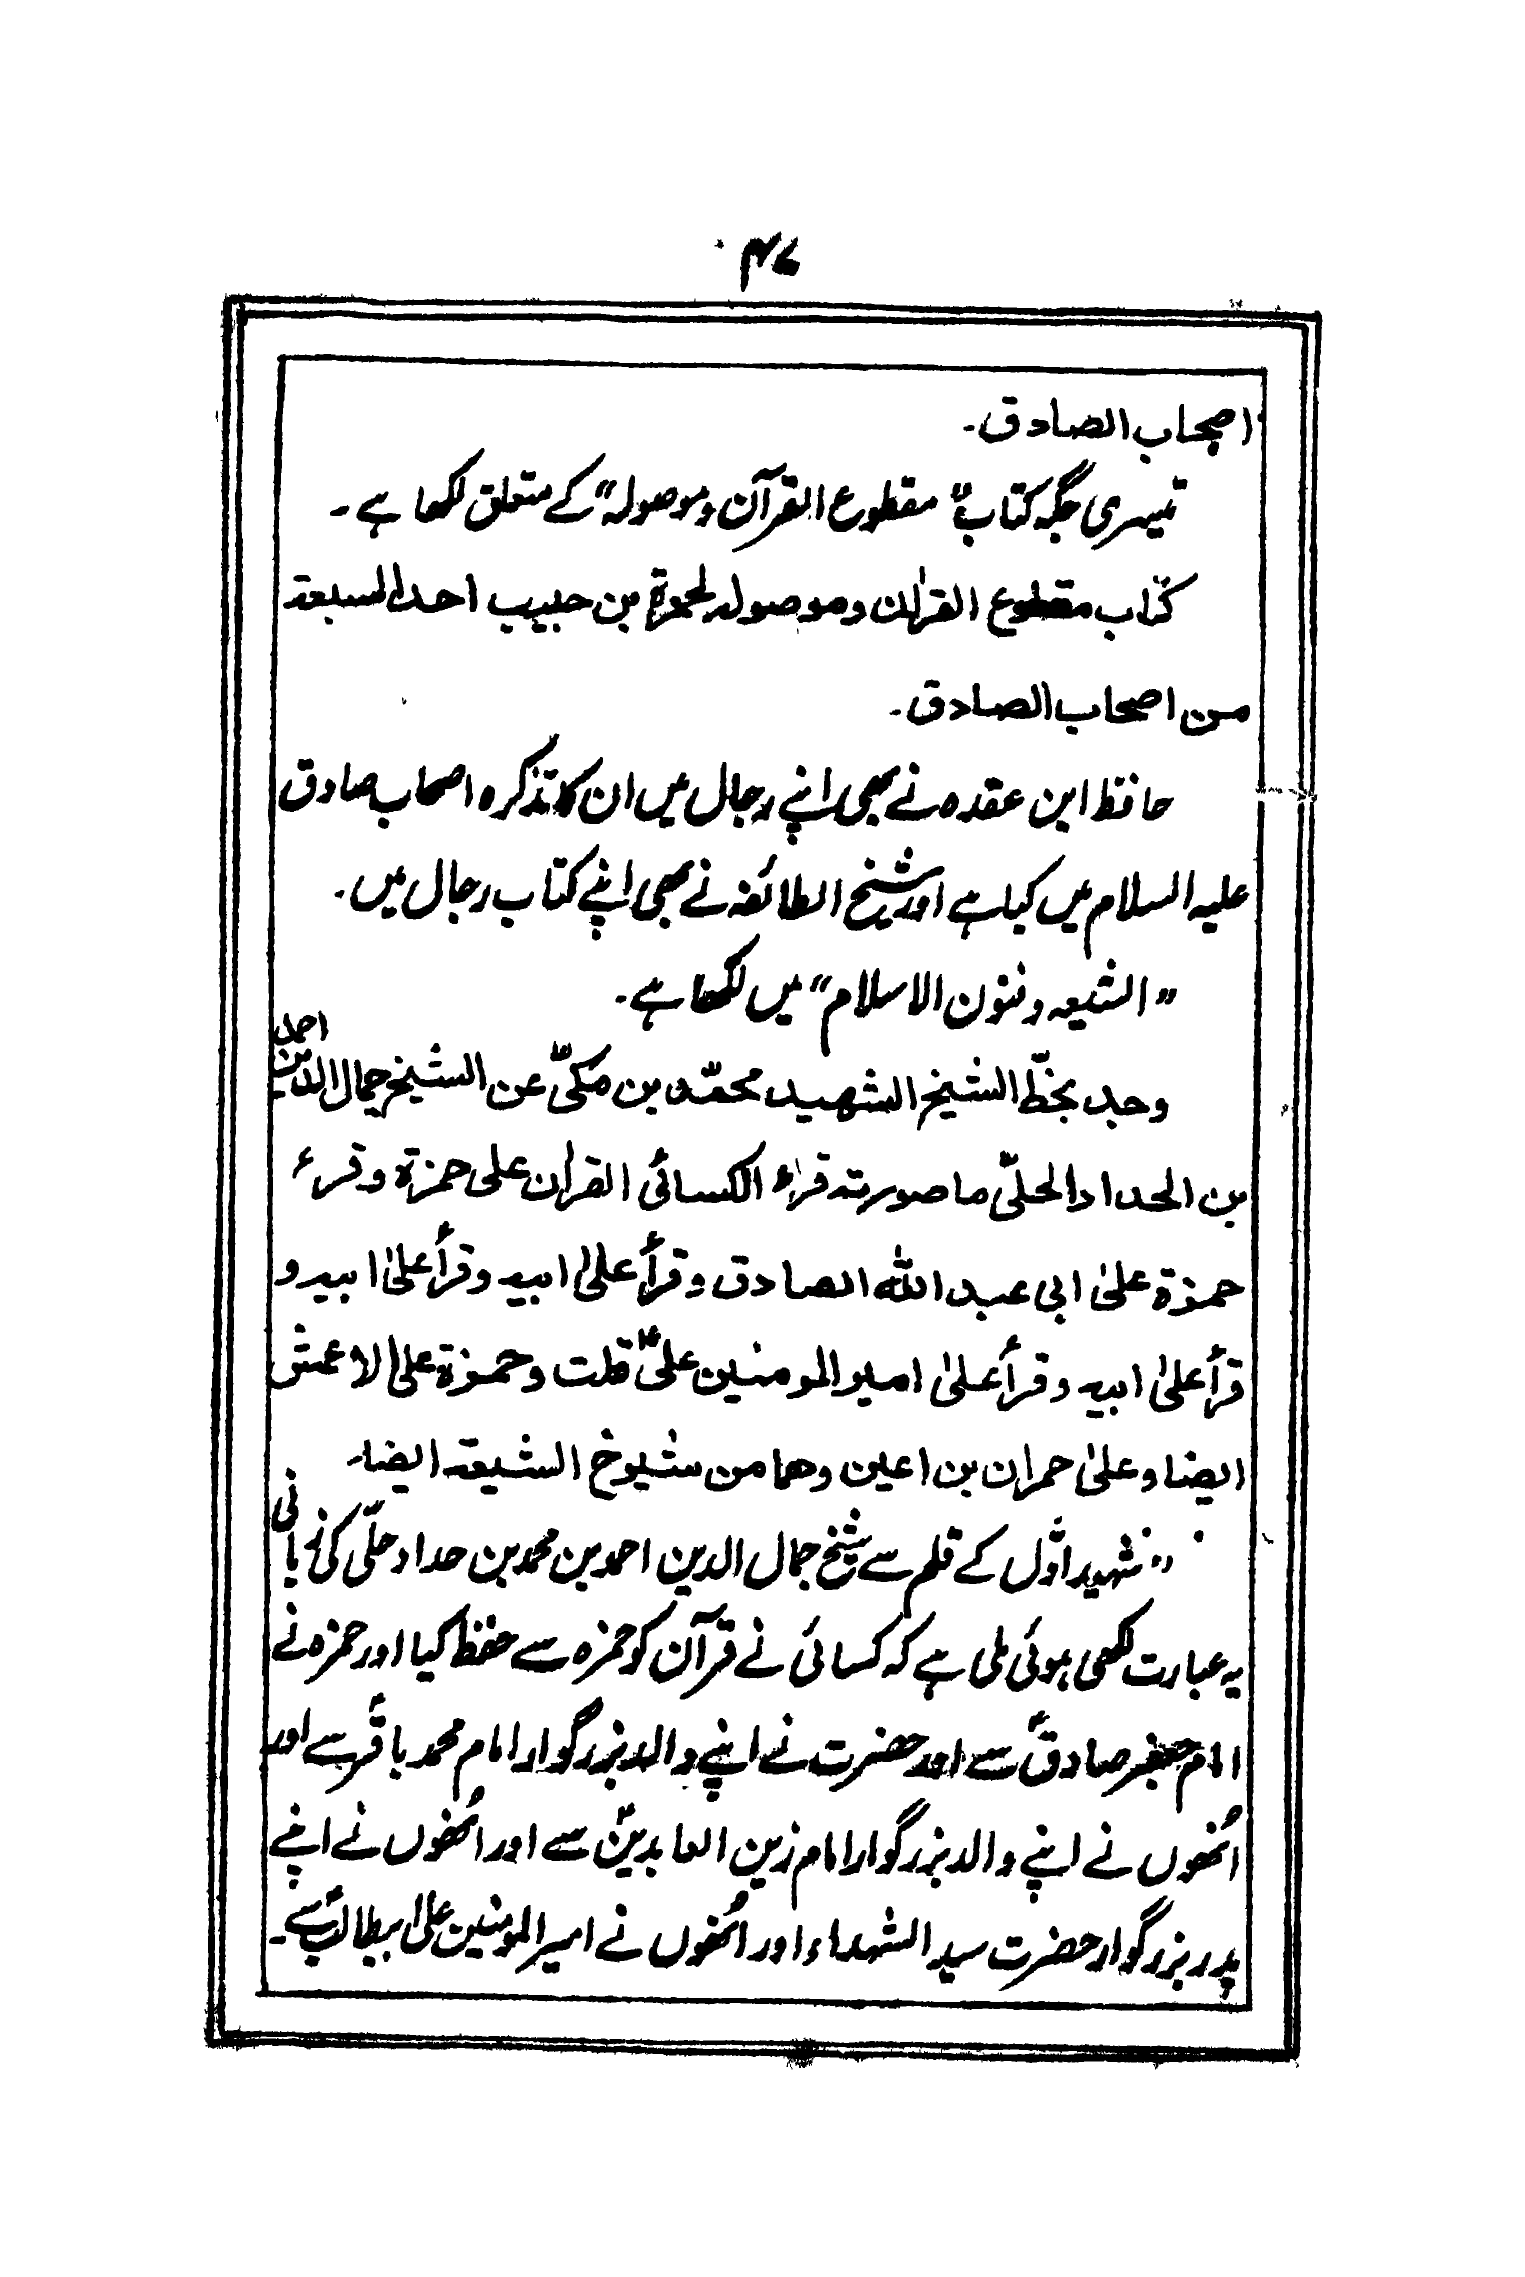 ۴۷
اصحاب الصادق۔
تیسری جگہ کتاب "مقطوع القرآن وموصولہ" کے متعلق لکھا ہے۔
کتاب مقطوع القراٰن وموصولہ لحمزۃ بن حبیب احد السبعۃ
من اصحاب الصادق۔
حافظ ابن عقدہ نے بھی اپنے رجال میں ان کا تذکرہ اصحاب صادق
علیہ السلام میں کیا ہے اور شیخ الطائفہ نے بھی اپنے کتاب رجال میں۔
"الشیعہ وفنون الاسلام" میں لکھا ہے۔
وجد بخطّ الشیخ الشھید محمّد بن مکیّ عن الشیخ جمال الدین احمد
بن الحداد الحلیّ ما صورتہ قرء الکسائی القراٰن علی حمزۃ وقرء
حمزۃ علیٰ ابی عبد اللہ الصادق وقرأ علیٰ ابیہ وقرأ علیٰ ابیہ و
قرأ علیٰ ابیہ وقرأ علیٰ امیر المومنین علیؑ قلت وحمزۃ علی الاعمش
ایضا وعلیٰ حمران بن اعین وھما من شیوخ الشیعۃ ایضا۔
"شہید اوّل کے قلم سے شیخ جمال الدین احمد بن محمد بن حداد حلّی کی زبانی
یہ عبارت لکھی ہوئی ملی ہے کہ کسائی نے قرآن کو حمزہ سے حفظ کیا اور حمزہ نے
امام جعفر صادقؑ سے اور حضرت نے اپنے والد بزرگوار امام محمد باقرؑ سے اور
اُنھوں نے اپنے والد بزرگوار امام زین العابدینؑ سے اور اُنھوں نے اپنے
پدر بزرگوار حضرت سید الشہداء اور اُنھوں نے امیر المومنین علی ابیطالبؑ سے۔